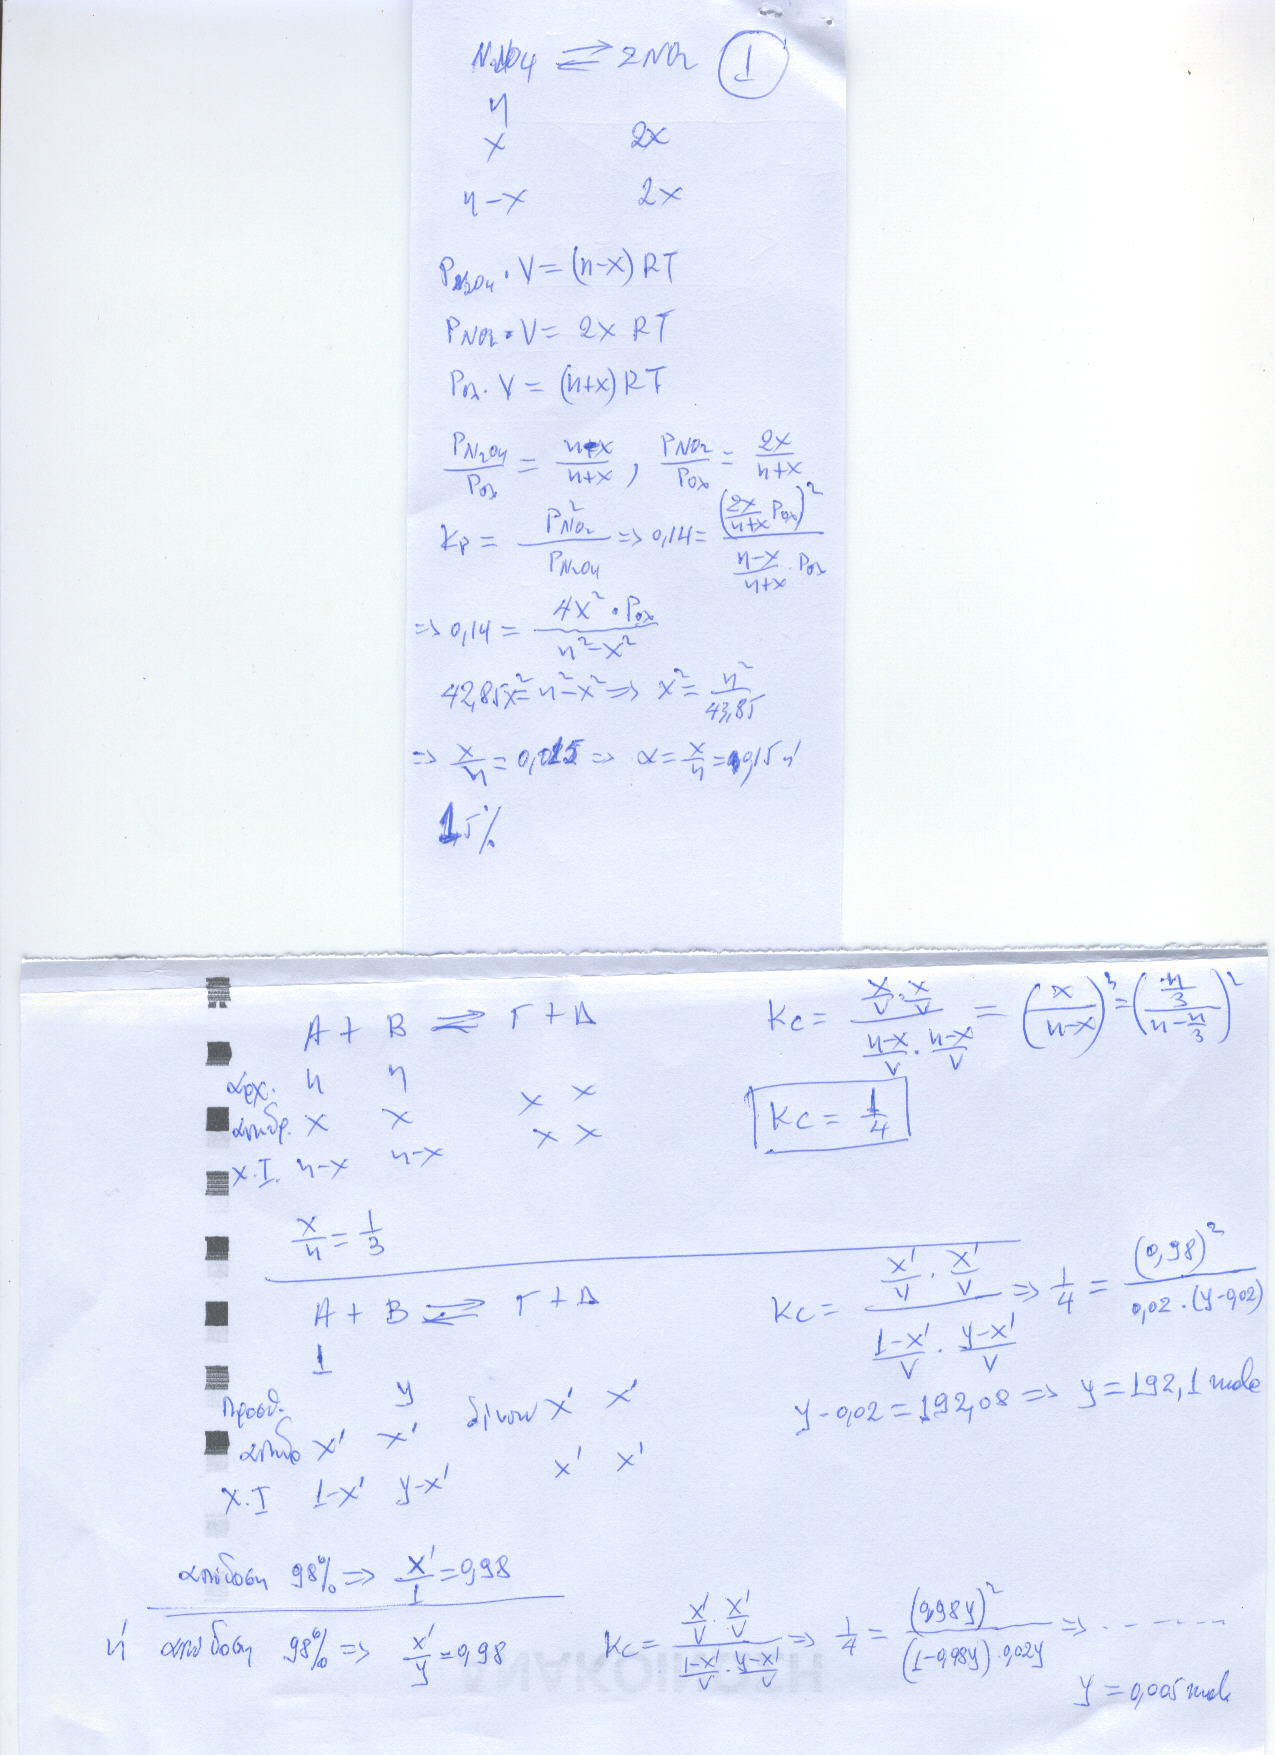 N₂O₄ ⇌ 2NO₂ 1
n
x 2x
n-x 2x
P_N₂O₄ · V = (n-x) RT
P_NO₂ · V = 2x RT
P_ολ · V = (n+x) RT
P_N₂O₄/P_ολ = (n-x)/(n+x) , P_NO₂/P_ολ = 2x/(n+x)
Kp = P²_NO₂/P_N₂O₄ => 0,14 = (2x/(n+x) P_ολ)²/((n-x)/(n+x) · P_ολ)
=> 0,14 = 4x² · P_ολ/(n²-x²)
42,85x² = n²-x² => x² = n²/43,85
=> x/n = 0,15 => α = x/n = 0,15 ή
15%
A + B ⇌ Γ + Δ
αρχ. n n
αντιδρ. x x x x
Χ.Ι. n-x n-x x x
x/n = 1/3
Kc = (x/V · x/V)/((n-x)/V · (n-x)/V) = (x/(n-x))² = ((n/3)/(n-n/3))²
Kc = 1/4
A + B ⇌ Γ + Δ
1
Προσθ. y
αντιδ x' x' δίνουν x' x'
Χ.Ι 1-x' y-x' x' x'
Kc = (x'/V · x'/V)/((1-x')/V · (y-x')/V) => 1/4 = (0,98)²/(0,02 · (y-0,02))
y-0,02 = 192,08 => y = 192,1 mole
απόδοση 98% => x'/1 = 0,98
ή απόδοση 98% => x'/y = 0,98
Kc = (x'/V · x'/V)/((1-x')/V · (y-x')/V) => 1/4 = (0,98y)²/((1-0,98y) · 0,02y) => . - - - - - -
y = 0,005 mole